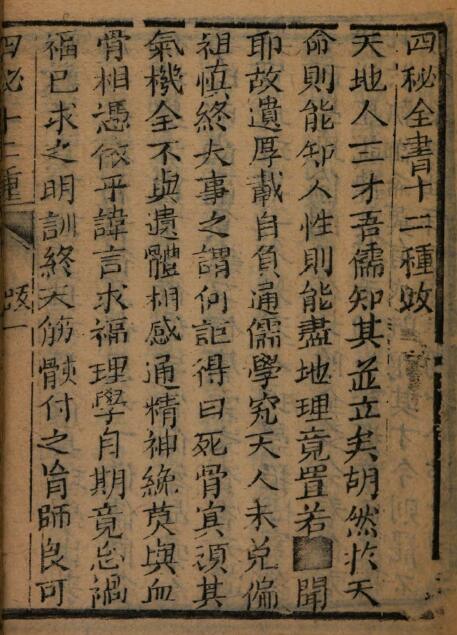 四秘全書十二種敘
天地人三才吾儒知其並立矣胡然於天
命則能知人性則能盡地理竟置若聞
耶故遺厚載自負通儒學究天人未免偏
祖慎終大事之謂何詎得曰死骨冥頑其
氣機全不與遺體相感通精神緫莫與血
骨相憑依乎諱言求福理學自期竟忘禍
福已求之明訓終天筋骸付之盲師良可
四秘十二種 敘 一